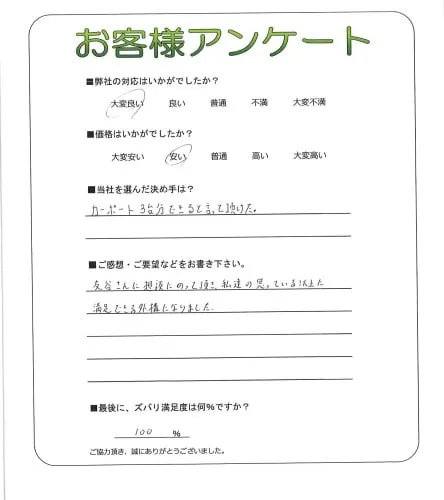 お客様アンケート
■弊社の対応はいかがでしたか？
大変良い 良い 普通 不満 大変不満
■価格はいかがでしたか？
大変安い 安い 普通 高い 大変高い
■当社を選んだ決め手は？
カーポート 3台分できると言って頂けた。
■ご感想・ご要望などをお書き下さい。
友谷さんに相談にのって頂き、私達の思っている以上に
満足できる外構になりました。
■最後に、ズバリ満足度は何％ですか？
100 ％
ご協力頂き、誠にありがとうございました。